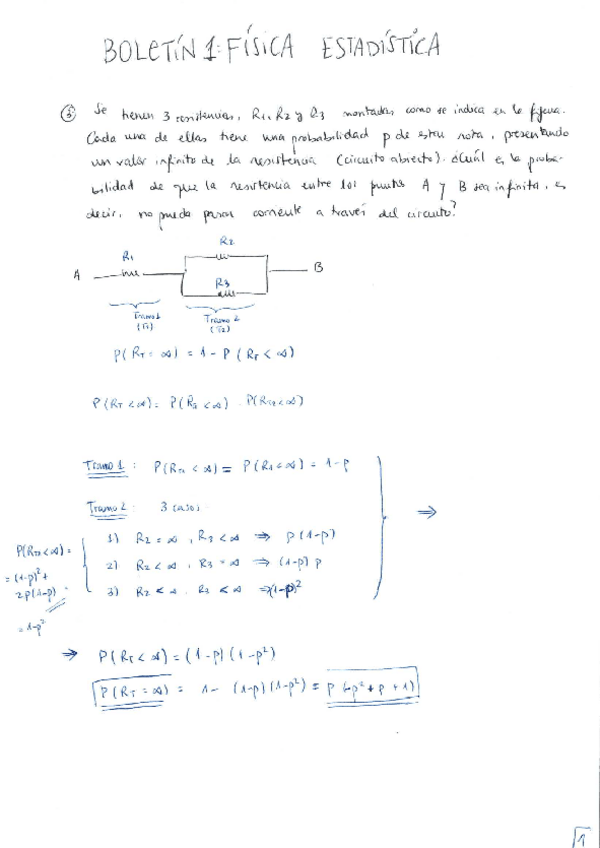 BOLETÍN 1: FÍSICA ESTADÍSTICA
③ Se tienen 3 resistencias, R1, R2 y R3 montadas como se indica en la figura.
Cada una de ellas tiene una probabilidad p de estar rota, presentando
un valor infinito de la resistencia (circuito abierto). ¿Cuál es la proba-
bilidad de que la resistencia entre los puntos A y B sea infinita, es
decir, no pueda pasar corriente a través del circuito?
R2
R1
A
B
R3
Tramo 1
(T1)
Tramo 2
(T2)
P(RT = ∞) = 1 - P(RT < ∞)
P(RT < ∞) = P(RT1 < ∞) · P(RT2 < ∞)
Tramo 1: P(RT1 < ∞) = P(R1 < ∞) = 1-p
Tramo 2: 3 casos:
⇒
1) R2 = ∞, R3 < ∞ ⇒ p(1-p)
2) R2 < ∞, R3 = ∞ ⇒ (1-p) p
3) R2 < ∞, R3 < ∞ ⇒ (1-p)²
P(RT2 < ∞) =
= (1-p)² +
2p(1-p)
= 1-p²
⇒ P(RT < ∞) = (1-p)(1-p²)
P(RT = ∞) = 1 - (1-p)(1-p²) = p(-p² + p + 1)
1